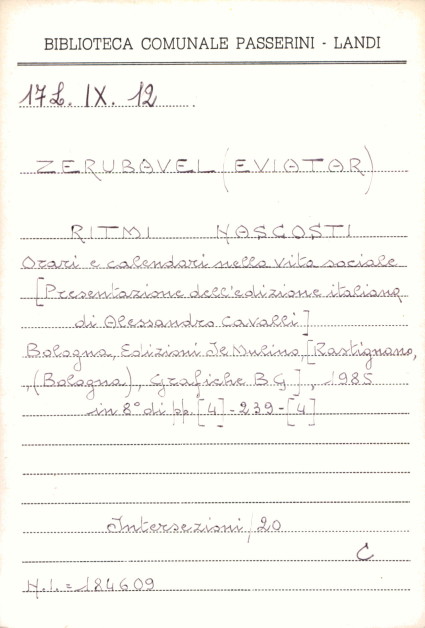 BIBLIOTECA COMUNALE PASSERINI - LANDI
17L. IX. 12
ZERUBAVEL (EVIATAR)
RITMI NASCOSTI
Orari e calendari nella vita sociale
[Presentazione dell'edizione italiana
di Alessandro Cavalli]
Bologna, Edizioni Il Mulino, [Rastignano,
(Bologna), Grafiche B.G.], 1985
in 8° di pp. [4]-239-[4]
Intersezioni, 20
C
N.I.=184609